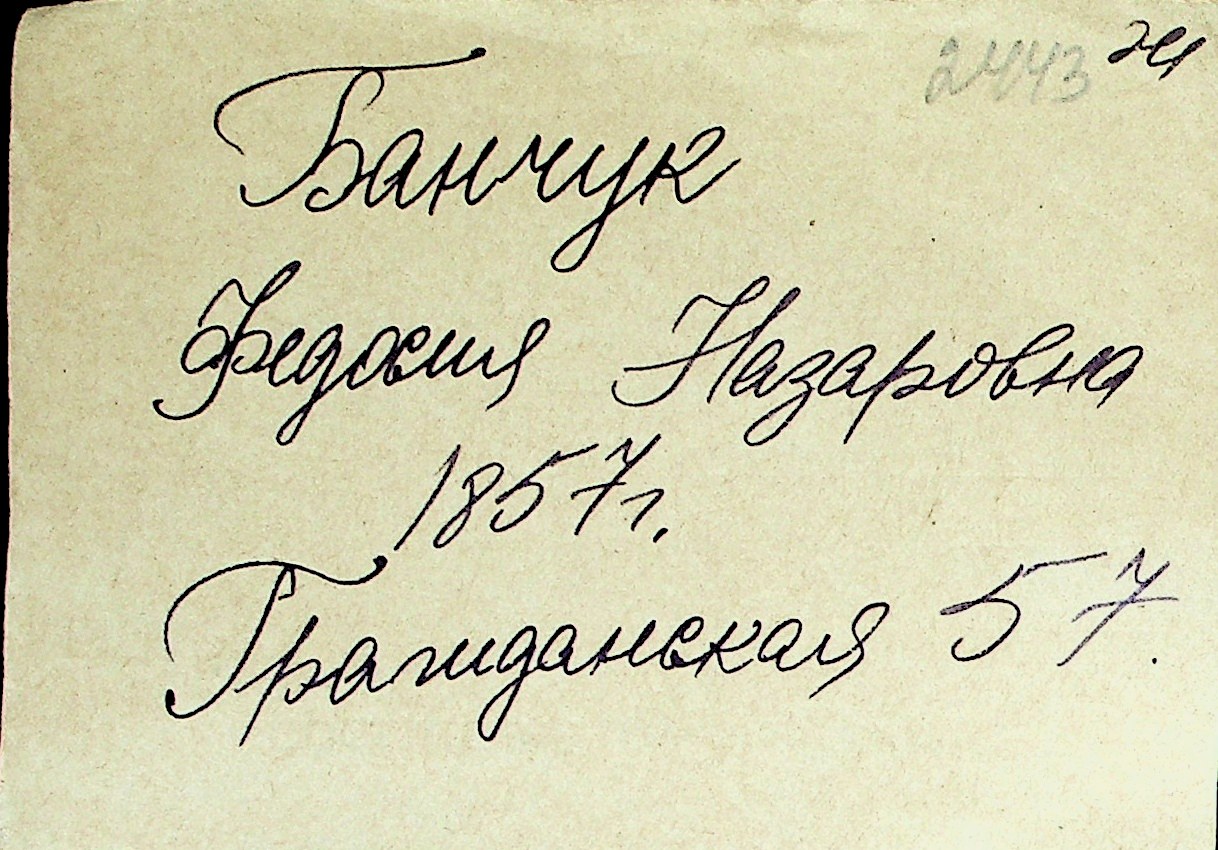 2443
Банчук
Федосия Назаровна
1857г.
Гражданская 57.